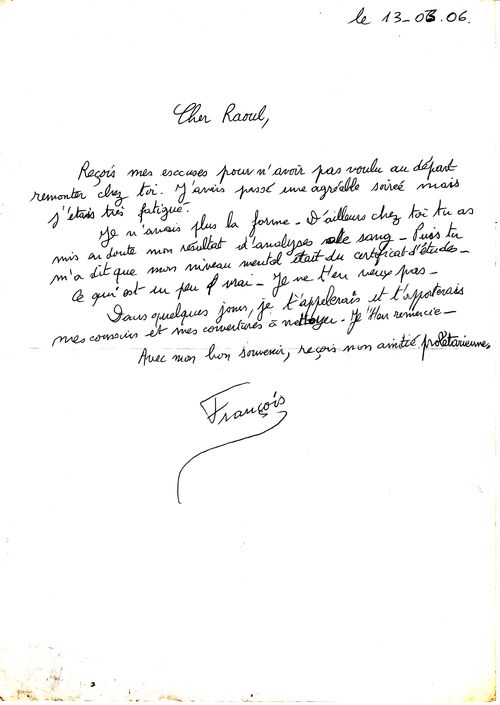 le 13-03.06.
Cher Raoul,
Reçois mes escuses pour n'avoir pas voulu au départ
remonter chez toi. J'avais passé une agréable soireé mais
j'étais très fatigué.
Je n'avais plus la forme - D'ailleurs chez toi tu as
mis en doute mon résultat d'analyses de sang - Puis tu
m'a dit que mon niveau mental était du certificat d'études -
Ce qui est un peu vrai - Je ne t'en veux pas -
Dans quelques jours, je t'appelerais et t'apporterais
mes coussins et mes couvertures à nettoyer - Je t'en remercie -
Avec mon bon souvenir, reçois mon amitié prolétarienne,
François